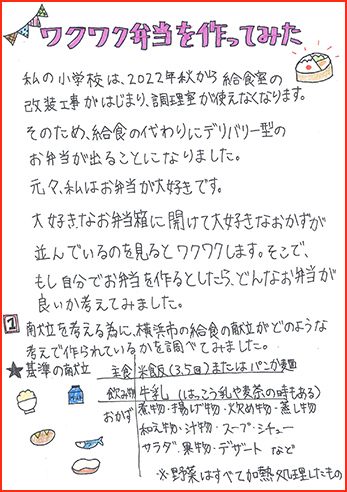 ワクワク弁当を作ってみた
私の小学校は、2022年秋から給食室の
改装工事がはじまり、調理室が使えなくなります。
そのため、給食の代わりにデリバリー型の
お弁当が出ることになりました。
元々、私はお弁当が大好きです。
大好きなお弁当箱に開けて大好きなおかずが
並んでいるのを見るとワクワクします。そこで、
もし自分でお弁当を作るとしたら、どんなお弁当が
良いか考えてみました。
1 献立を考える為に、横浜市の給食の献立がどのような
考えで作られているかを調べてみました。
★基準の献立 主食 米飯(3.5回)またはパンか麺
飲み物 牛乳(はっこう乳や麦茶の時もある)
おかず 煮物・揚げ物・炒め物・蒸し物
和え物・汁物・スープ・シチュー
サラダ・果物・デザート など
※野菜はすべて加熱処理したもの